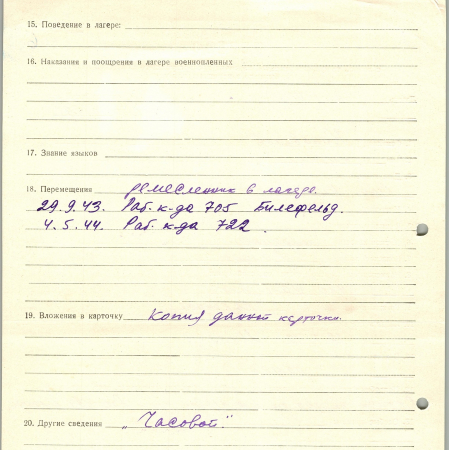 15. Поведение в лагере:
16. Наказания и поощрения в лагере военнопленных
17. Знание языков
18. Перемещения ремесленник в лагере.
29.9.43. Раб. к-да 705 Билефельд.
4.5.44. Раб. к-да 722.
19. Вложения в карточку Копия данной карточки.
20. Другие сведения „Часовой".